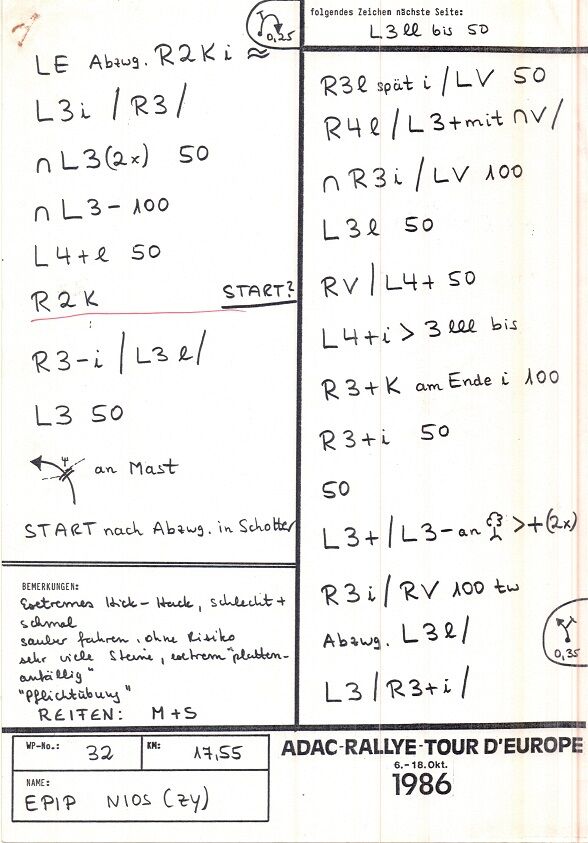 0,25
folgendes Zeichen nächste Seite:
L3ll bis 50
LE Abzwg. R2Ki ≈
L3i / R3 /
∩ L3(2x) 50
∩ L3- 100
L4+l 50
R2K START?
R3-i / L3l /
L3 50
an Mast
START nach Abzwg. in Schotter
BEMERKUNGEN:
Extremes Hick-Hack, schlecht +
schmal
sauber fahren, ohne Risiko
sehr viele Steine, extrem "platten-
anfällig"
"Pflichtübung"
REITEN: M+S
R3l spät i / LV 50
R4l / L3+mit ∩V /
∩ R3i / LV 100
L3l 50
RV / L4+ 50
L4+i > 3lll bis
R3+K am Ende i 100
R3+i 50
50
L3+ / L3- an >+(2x)
R3i / RV 100 tw
Abzwg. L3l /
0,35
L3 / R3+i /
WP-No.: 32 KM: 17,55
NAME:
EPIP NIOS (ZY)
ADAC-RALLYE-TOUR D'EUROPE
6.-18.Okt.
1986